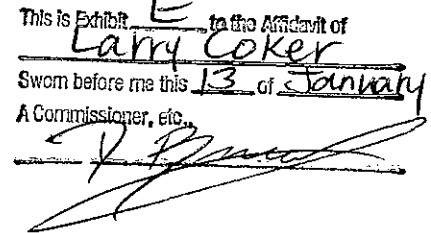 This is Exhibit E to the Affidavit of
Larry Coker
Sworn before me this 13 of January
A Commissioner, etc.,